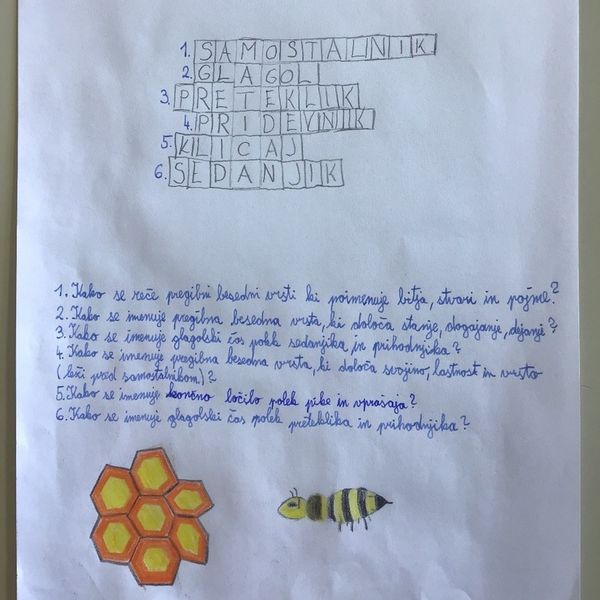 1. SAMOSTALNIK
2. GLAGOL
3. PRETEKLIK
4. PRIDEVNIK
5. KLICAJ
6. SEDANJIK
1. Kako se reče pregibni besedni vrsti ki poimenuje bitja, stvari in pojme?
2. Kako se imenuje pregibna besedna vrsta, ki določa stanje, dogajanje, dejanje?
3. Kako se imenuje glagolski čas poleg sedanjika, in prihodnjika?
4. Kako se imenuje pregibna besedna vrsta, ki določa svojino, lastnost in vrsto
(leži pred samostalnikom)?
5. Kako se imenuje končno ločilo poleg pike in vprašaja?
6. Kako se imenuje glagolski čas poleg preteklika in prihodnjika?